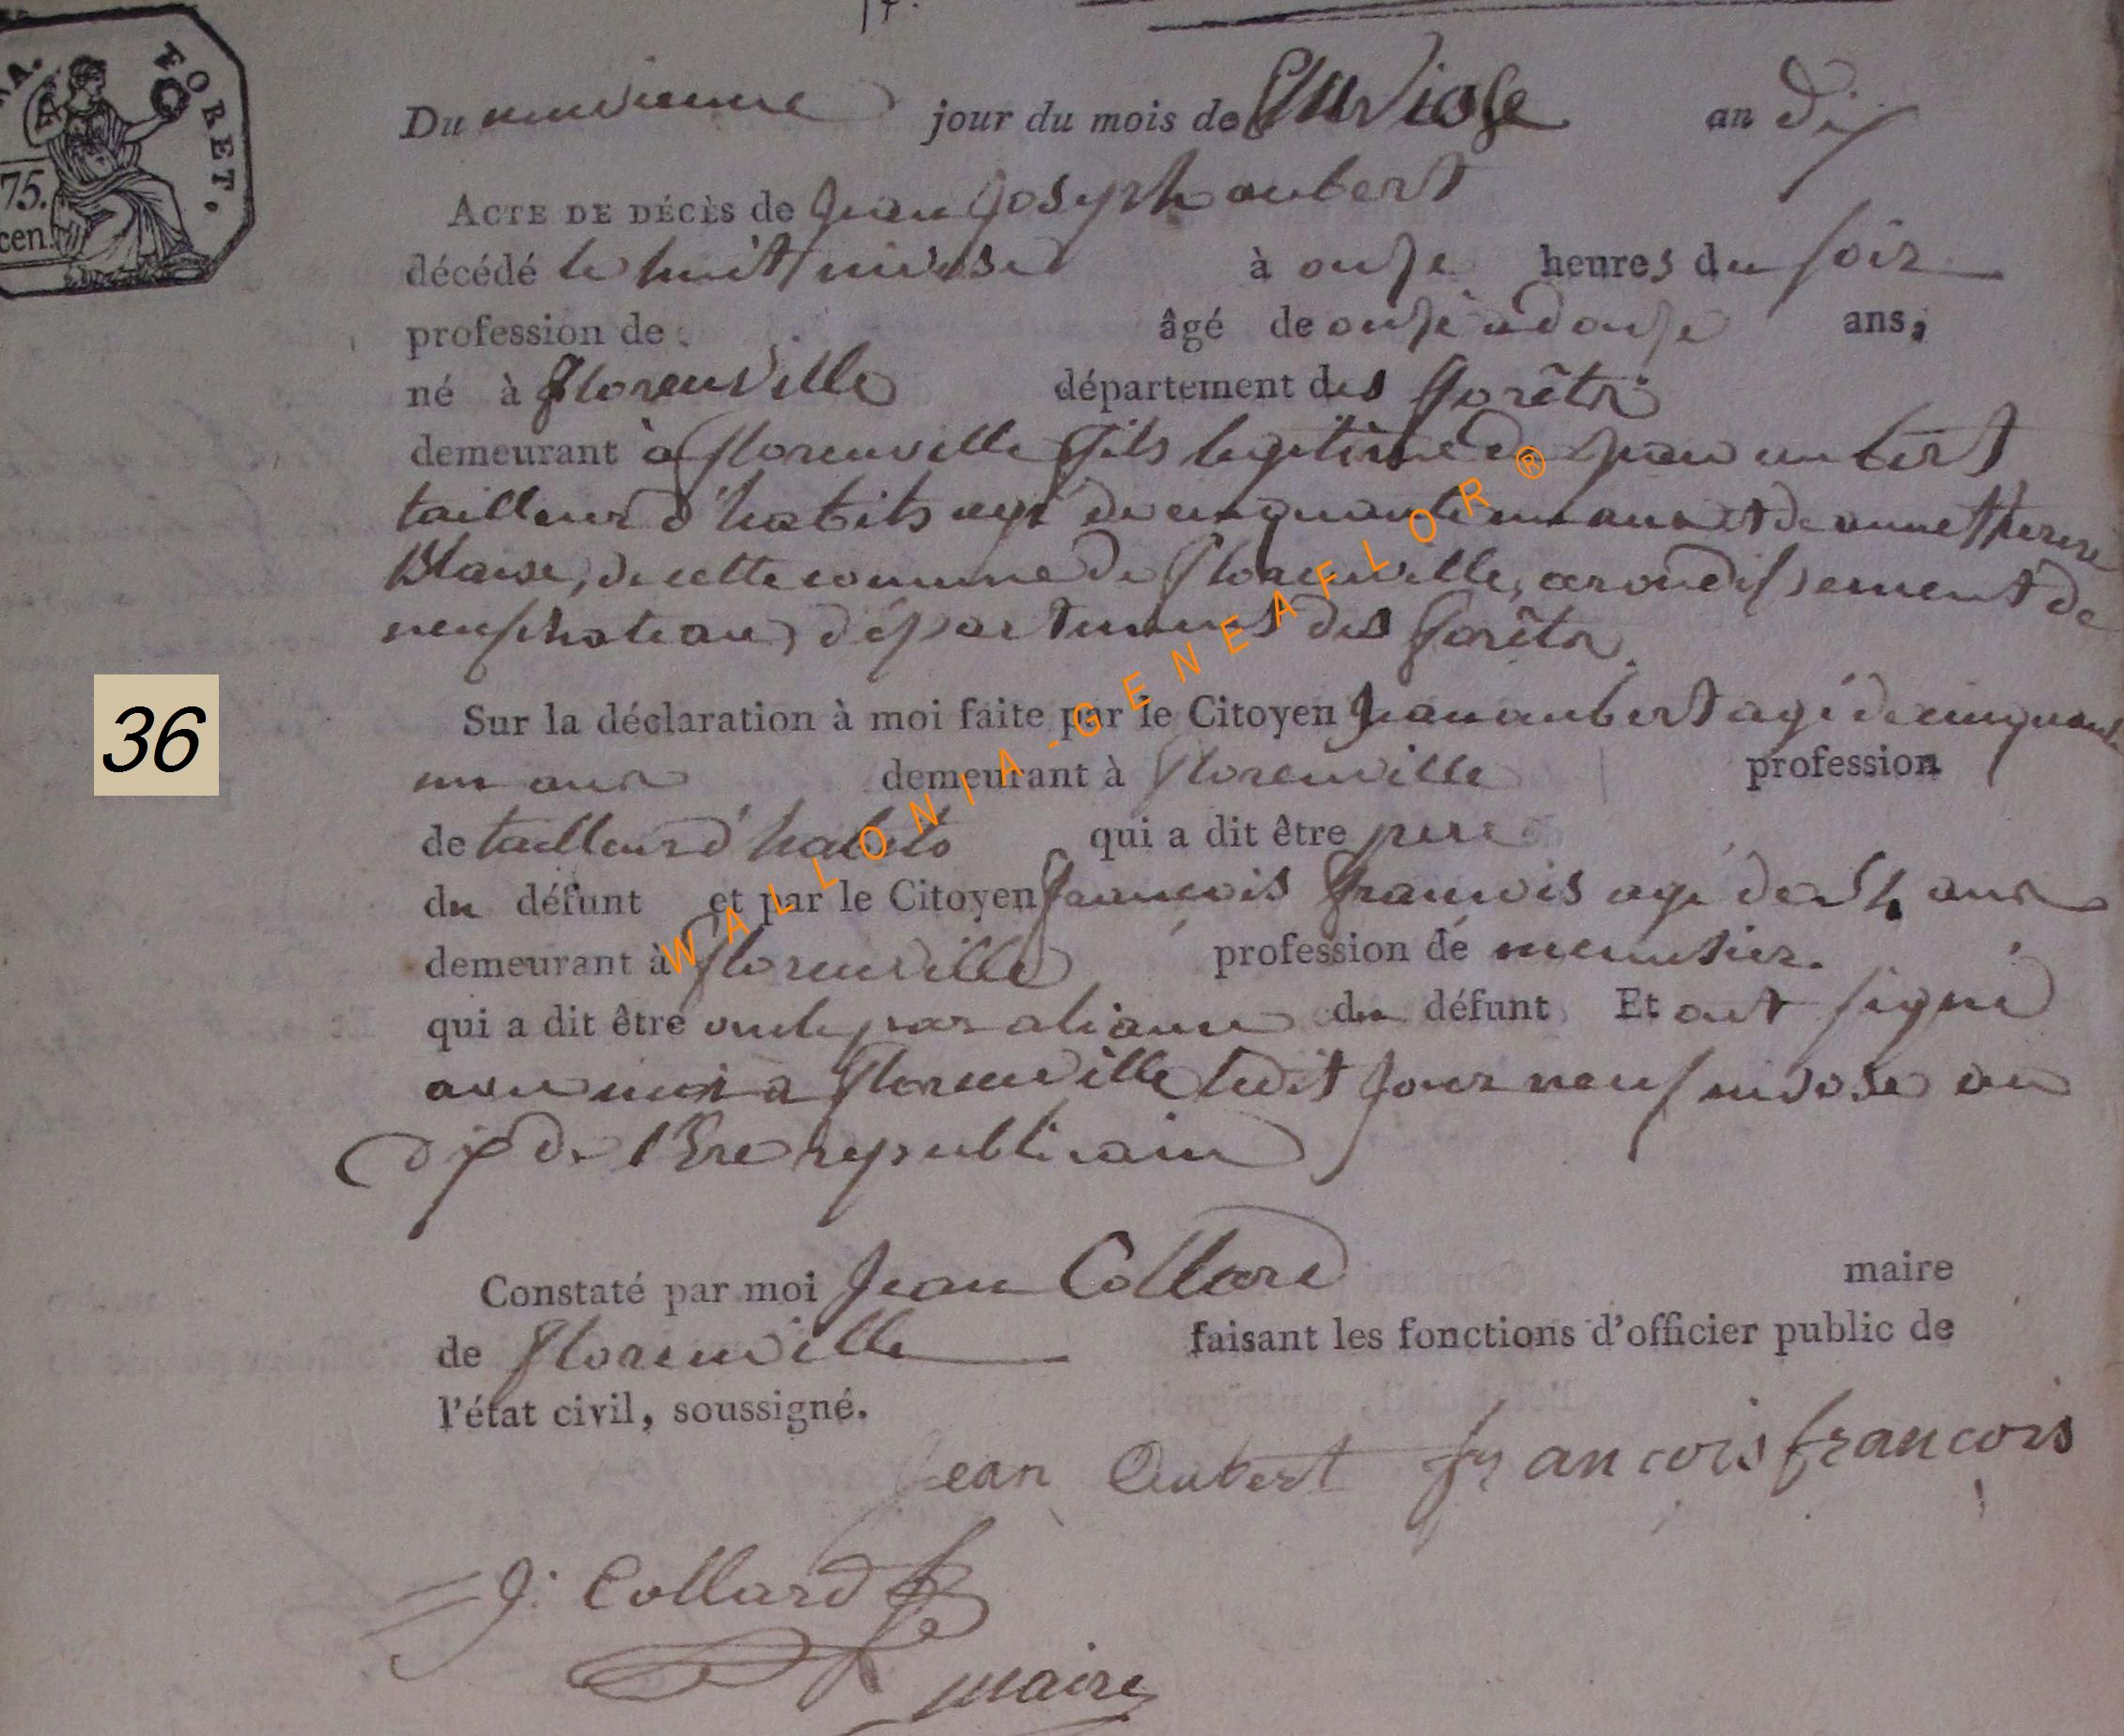 FORET.
75.
cen.
Du neuvieme jour du mois de Pluviose an dix
ACTE DE DÉCÈS de jean joseph aubert
décédé le huit nivose à onze heures du soir
profession de âgé de onze à douze ans,
né à florenville département des forêts
demeurant à florenville fils legitime de jean aubert
tailleur d'habits agé de cinquante un ans et de anne therese
Blaise, de cette commune de florenville, arondissement de
neufchateau, département des forêts.
36
Sur la déclaration à moi faite par le Citoyen jean aubert agé de cinquante
un ans demeurant à florenville profession
de tailleur d'habits qui a dit être pere
du défunt et par le Citoyen francois francois agé de 54 ans
demeurant à florenville profession de menusier.
qui a dit être oncle par aliance du défunt Et ont signé
avec moi a florenville ledit jour neuf nivose an
dix de l'Ere republicain
Constaté par moi Jean Collard maire
de florenville faisant les fonctions d'officier public de
l'état civil, soussigné.
jean Aubert francois francois
J. Collard
maire
WALLONIA-GENEAFLOR®